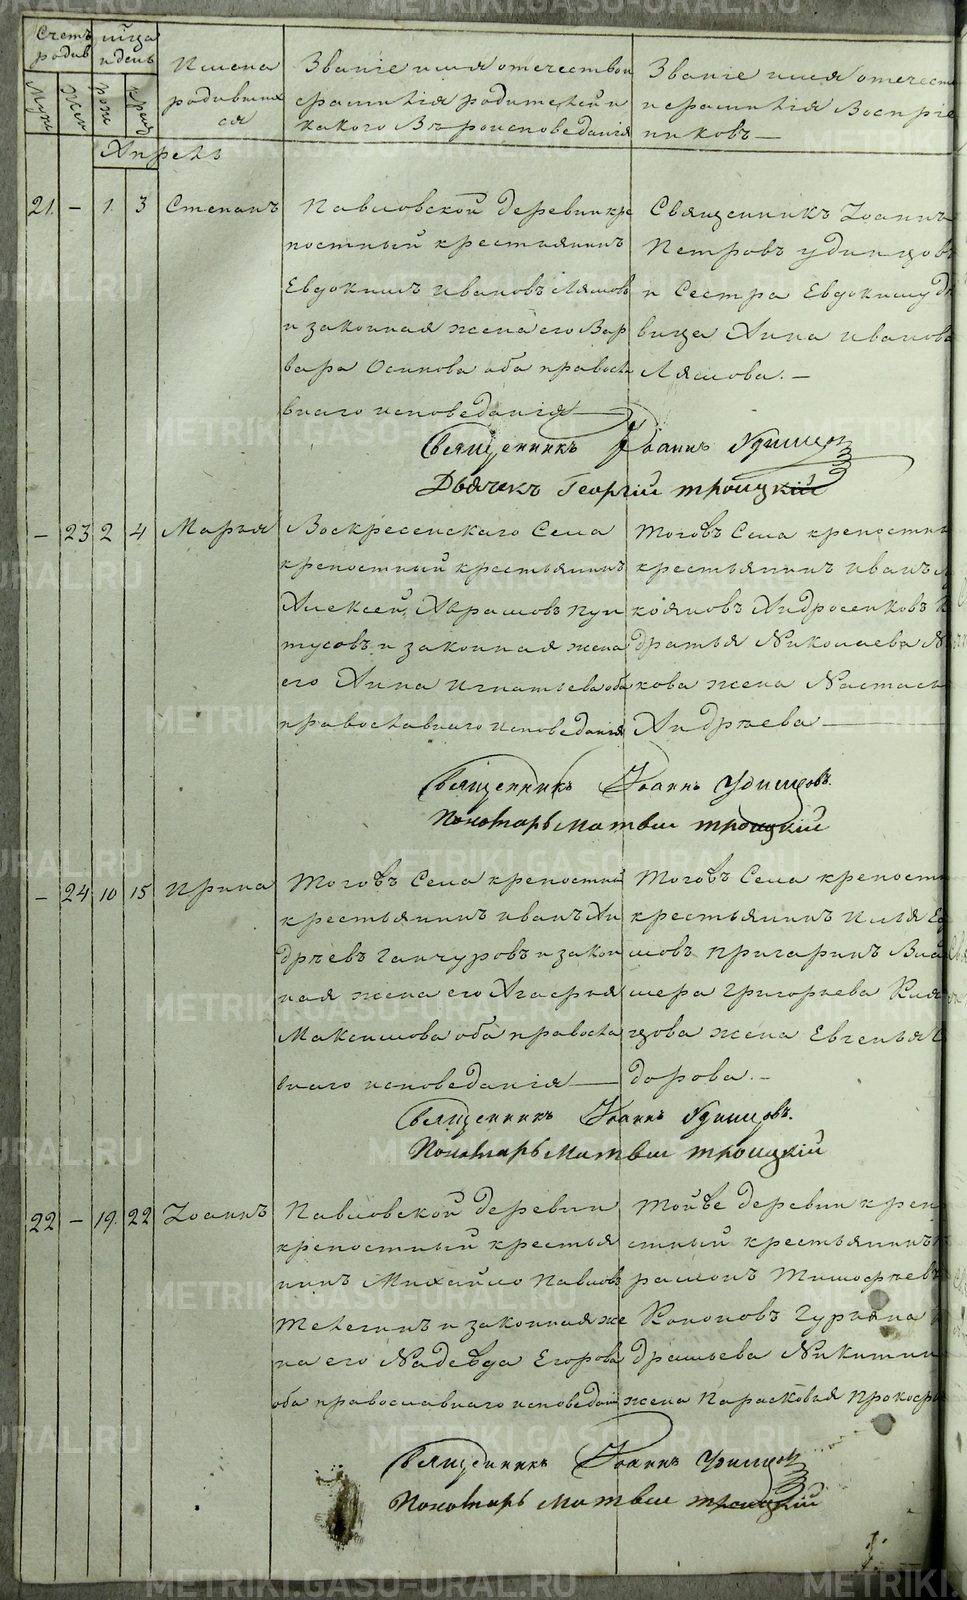 Счетъ
родив
мѣсца
и день
Муж
Жен
рож
крещ
Имена
родивших
ся
Званіе имя отечество и
фамилія родителей и
какого Вѣроисповеданія
Званіе имя отечеств
и фамилія Воспріе
никовъ —
Апрель
21. — 1. 3 Степанъ
Павловской деревни кре
постный крестьянинъ
Евдокимъ Ивановъ Лямовъ
и законная жена его Вар
вара Осипова оба правосла
внаго исповеданія —
Священникъ Іоаннъ
Петровъ Удинцовъ
и Сестра Евдокиму Дѣ
вица Анна Иванова
Лямова. —
Священникъ Іоаннъ Удинцов
Дьячекъ Георгій Троицкій
— 23 2 4 Марья
Воскресенскаго Села
крепостный крестьянинъ
Алексей Аврамовъ Пун
тусовъ и законная жена
его Анна Игнатьева оба
православнаго исповеданія
Тоговъ Села крепостны
крестьянинъ Иванъ
кояновъ Андросенковъ
дратья Николаева
кова жена Настась
Андрѣева —
Священникъ Іоаннъ Удинцовъ.
Пономарь Матвеи Троицкій
— 24 10 15 Ирина
Тоговъ Села крепостный
крестьянинъ Иванъ Ан
дрѣевъ Ганчуровъ и закон
ная жена его Агафья
Максимова оба правосла
внаго исповеданія —
Тоговъ Села крепостн
крестьянинъ Илія Еф
имовъ Пригаринъ Вла
мера Григорьева
цова жена Евгенья
дорова. —
Священникъ Іоаннъ Удинцовъ.
Пономарь Матвеи Троицкій
22 — 19. 22 Іоаннъ
Павловской деревни
крепостный крестья
нинъ Михайло Павловъ
Телегинъ и законная же
на его Надежда Егорова
оба православнаго исповедан
Тойве деревни креп
стный крестьянинъ
рамонъ Тимофѣевъ
Кононовъ Гурьяна
дратьева Никитин
жена Парасковья Прокофь
Священникъ Іоаннъ Удинцов
Пономарь Матвеи Троицкій
METRIKI.GASO-URAL.RU